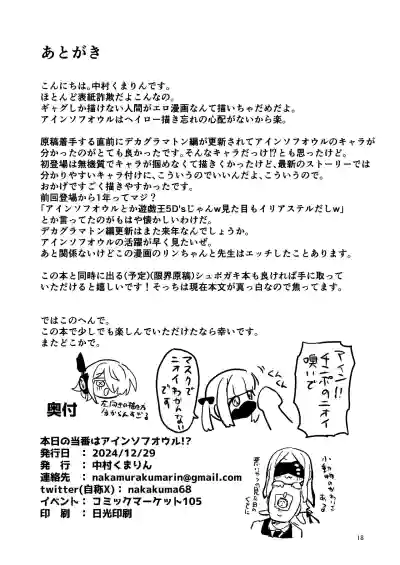 あとがき
こんにちは。中村くまりんです。
アインソフオウルはヘイロー描き忘れの心配がないから楽。
原稿着手する直前にデカグラマトン編が更新されてアインソフオウルのキャラが
分かったのがとても良かったです。そんなキャラだっけ!?とも思ったけど。
初登場は無機質でキャラが掴めなくて描きにくかったけど、最新のストーリーでは
分かりやすいキャラ付けに、こういうのでいいんだよ、こういうので。
おかげですごく描きやすかったです。
前回登場から1年ってマジ？
「アインソフオウルとか遊戯王5D'sじゃんw見た目もイリアステルだしw」
とか言ってたのがもはや懐かしいわけだ。
デカグラマトン編更新はまた来年なんでしょうか。
アインソフオウルの活躍が早く見たいぜ。
この本と同時に出る(予定)(限界原稿)シュポガキ本も良ければ手に取って
いただけると嬉しいです！そっちは現在本文が真っ白なので焦ってます。
ではこのへんで。
この本で少しでも楽しんでいただけたなら幸いです。
またどこかで。
奥付
本日の当番はアインソフオウル!?
発行日 ： 2024/12/29
発　行 ： 中村くまりん
連絡先 ： nakamurakumarin@gmail.com
twitter(自称X)： nakakuma68
イベント：コミックマーケット105
印　刷 ： 日光印刷
18